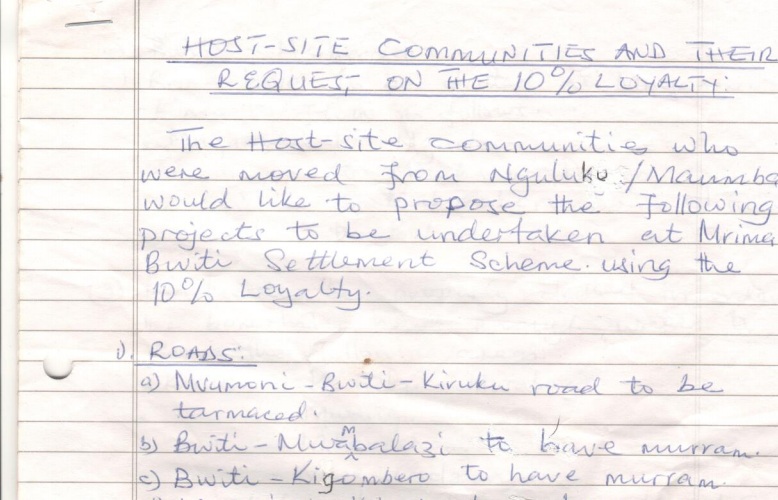 HOST-SITE COMMUNITIES AND THEIR
REQUEST ON THE 10% LOYALTY:
The Host-site communities who
were moved from Nguluku/Maumba
would like to propose the following
projects to be undertaken at Mrima
Bwiti Settlement Scheme. using the
10% Loyalty.
i). ROADS:
a) Mvumoni-Bwiti-Kiruku road to be
tarmaced.
b) Bwiti-Mwambalazi to have murram.
c) Bwiti-Kigombero to have murram